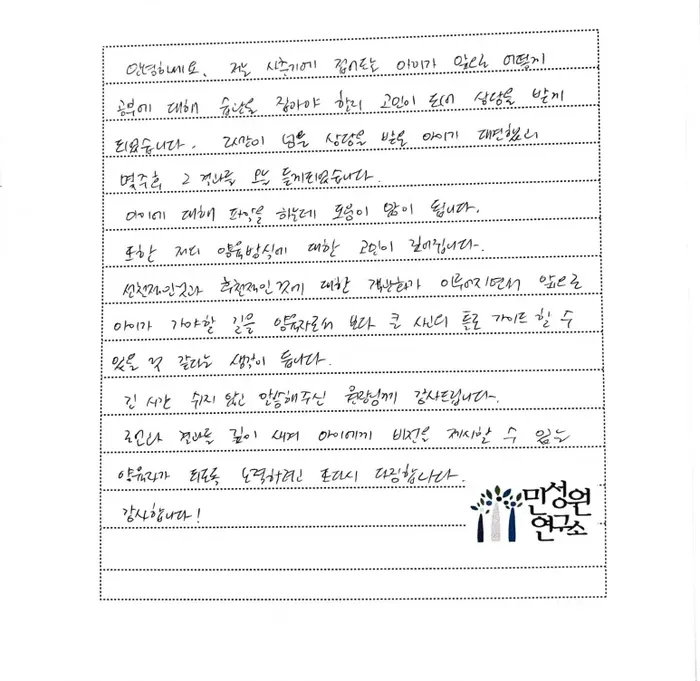 안녕하세요. 저는 사춘기에 접어드는 아이가 앞으로 어떻게
공부에 대해 습관을 잡아야 할지 고민이 되어 상담을 받게
되었습니다. 2시간이 넘을 상담을 받을 아이가 대견했고
몇주후 그 결과를 오늘 듣게되었습니다.
아이에 대해 파악을 하는데 도움이 많이 됩니다.
또한 저의 양육방식에 대한 고민이 깊어집니다.
선천적인것과 후천적인것에 대한 객관화가 이루어지면서 앞으로
아이가 가야할 길을 양육자로써 보다 큰 시선의 틀로 가이드 할 수
있을 것 같다는 생각이 듭니다.
긴 시간 쉬지 않고 말씀해주신 원장님께 감사드립니다.
결과를 깊이 새겨 아이에게 비전을 제시할 수 있는
양육자가 되도록 노력하려고 또다시 다짐합니다.
감사합니다!
민성원
연구소